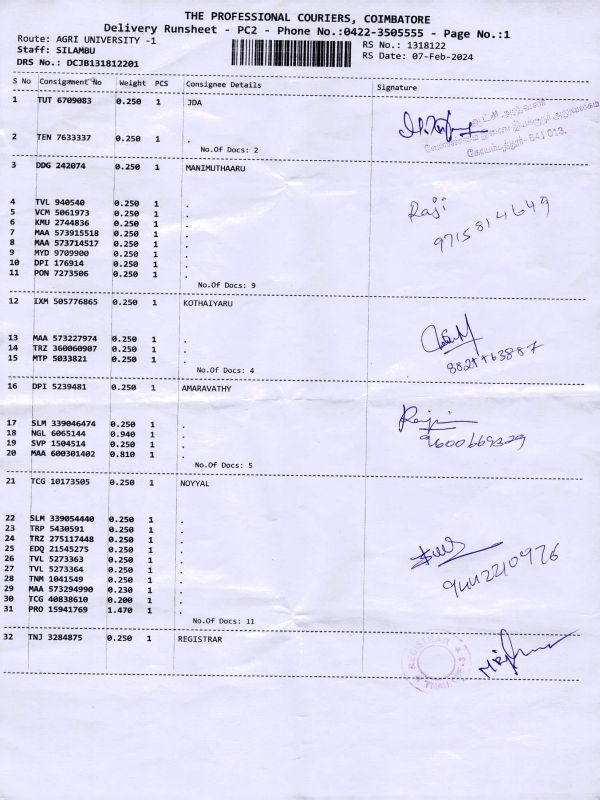 THE PROFESSIONAL COURIERS, COIMBATORE
Delivery Runsheet - PC2 - Phone No.:0422-3505555 - Page No.:1
Route: AGRI UNIVERSITY -1
RS No.: 1318122
Staff: SILAMBU
RS Date: 07-Feb-2024
DRS No.: DCJB131812201
S No Consignment No Weight PCS Consignee Details Signature
1 TUT 6709083 0.250 1 JDA
641 013.
2 TEN 7633337 0.250 1 .
No.Of Docs: 2
3 DDG 242074 0.250 1 MANIMUTHAARU
4 TVL 940540 0.250 1 .
Raji
5 VCM 5061973 0.250 1 .
6 KMU 2744836 0.250 1 .
7 MAA 573915518 0.250 1 .
9715814649
8 MAA 573714517 0.250 1 .
9 MYD 9709900 0.250 1 .
10 DPI 176914 0.250 1 .
11 PON 7273506 0.250 1 .
No.Of Docs: 9
12 IXM 505776865 0.250 1 KOTHAIYARU
13 MAA 573227974 0.250 1 .
14 TRZ 360060907 0.250 1 .
15 MTP 5033821 0.250 1 .
No.Of Docs: 4
16 DPI 5239481 0.250 1 AMARAVATHY
17 SLM 339046474 0.250 1 .
18 NGL 6065144 0.940 1 .
19 SVP 1504514 0.250 1 .
9600669329
20 MAA 600301402 0.810 1 .
No.Of Docs: 5
21 TCG 10173505 0.250 1 NOYYAL
22 SLM 339054440 0.250 1 .
23 TRP 5430591 0.250 1 .
24 TRZ 275117448 0.250 1 .
25 EDQ 21545275 0.250 1 .
26 TVL 5273363 0.250 1 .
27 TVL 5273364 0.250 1 .
28 TNM 1041549 0.250 1 .
9442210976
29 MAA 573294990 0.230 1 .
30 TCG 40838610 0.200 1 .
31 PRO 15941769 1.470 1 .
No.Of Docs: 11
32 TNJ 3284875 0.250 1 REGISTRAR
REGISTRAR